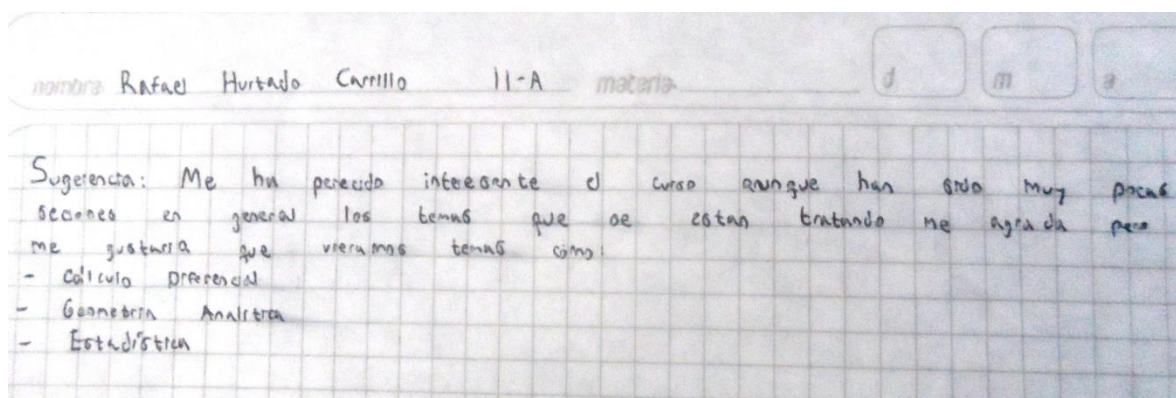 nombre Rafael Hurtado Carrillo 11-A materia d m a
Sugerencia: Me ha parecido interesante el curso aunque han sido muy pocas
secciones en general los temas que se estan tratando me agrada pero
me gustaria que vieramos temas como:
- Cálculo Diferencial
- Geometria Analitica
- Estadística